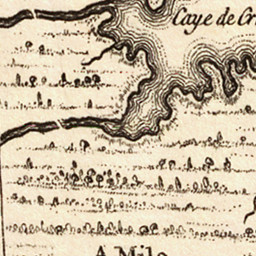 Caye de Cr
A Mile